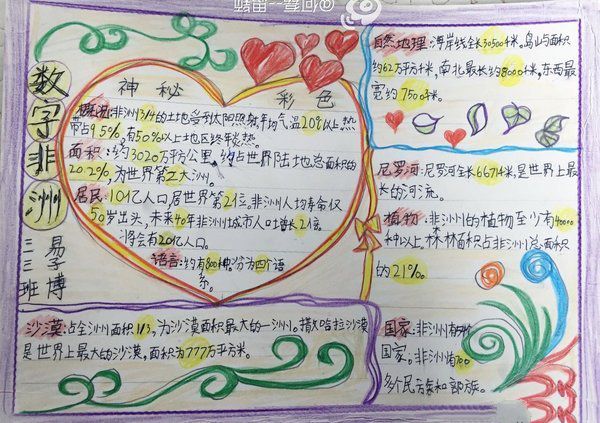 数字非洲
三三班
易学博
神秘彩色
概况:非洲3/4的土地受到太阳照射,年均气温20℃以上热
带占95%,有50%以上地区终年炎热。
面积:约3020万平方公里,约占世界陆地总面积的
20.2%,为世界第二大洲。
居民:10亿人口居世界第2位。非洲人均寿命仅
50岁出头,未来40年非洲城市人口增长2倍。
将会有20亿人口。
语言:约有800种。分为四个语
系。
沙漠:占全洲面积1/3,为沙漠面积最大的一洲。撒哈拉沙漠
是世界上最大的沙漠,面积为777万平方米。
自然地理:海岸线全长30500千米。岛屿面积
约62万平方千米,南北最长约8000千米,东西最
宽约7500千米。
尼罗河:尼罗河全长6671千米,是世界上最
长的河流。
植物:非洲的植物至少有40000
种以上,森林面积占非洲总面积
的21%。
国家:非洲有
国家,非洲有700
多个民族和部族。